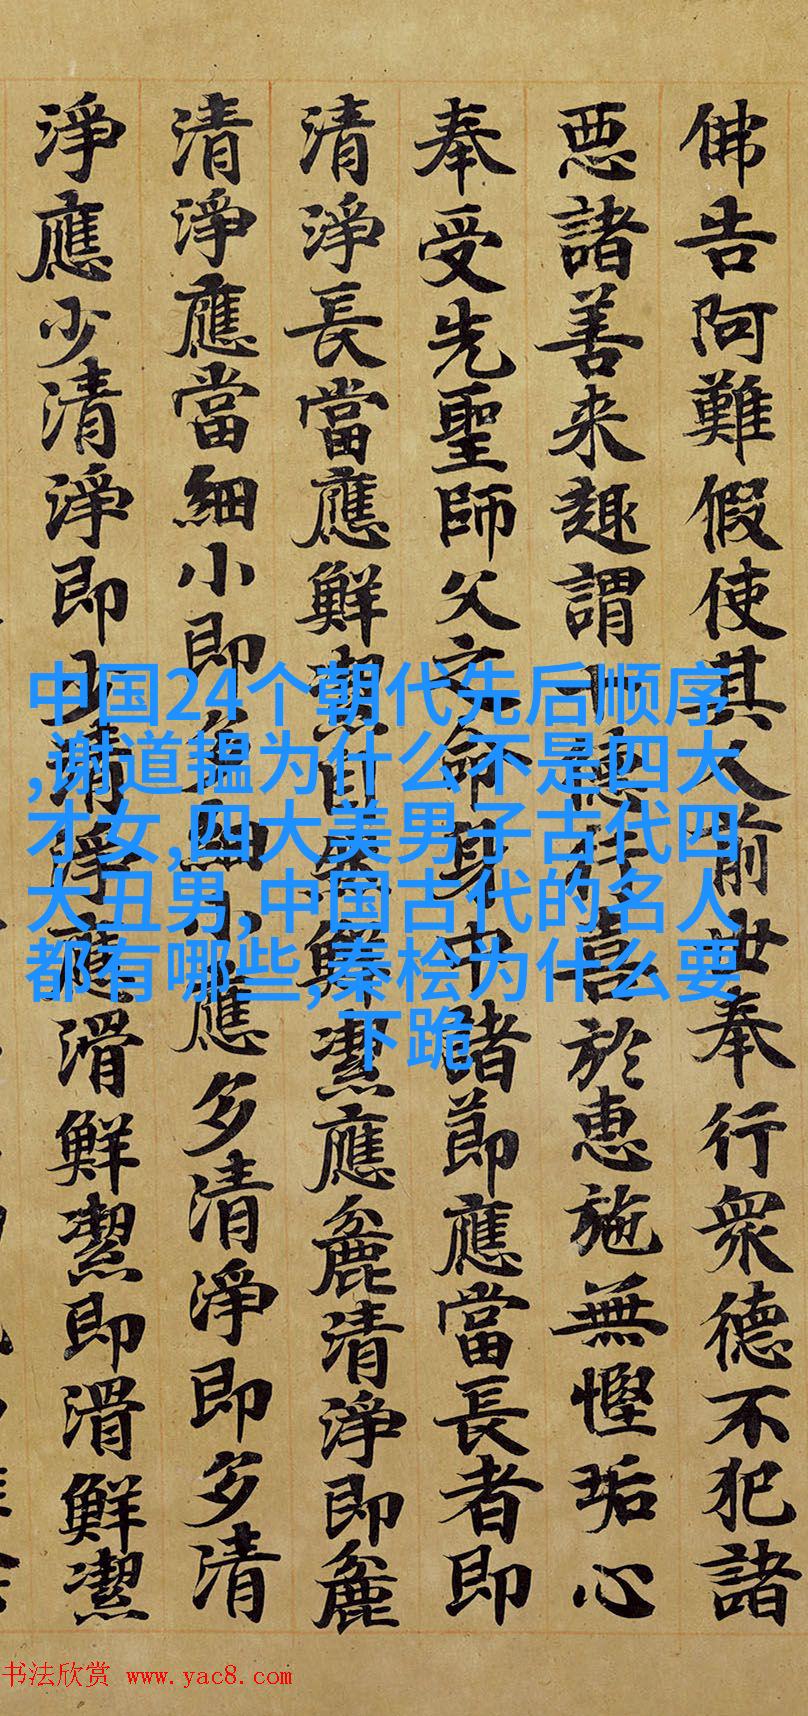 佛告阿難假使其人前世奉行眾德不犯諸
惡諸善来趣謂十德行喜於惠施無慳垢心
奉受先聖師父之命身中諸節應當長者即
清淨長當應鮮潔自然鮮潔應麁清淨即麁
清淨應當細小即多細小應多清淨即多清
淨應少清淨即少清淨應滑鮮潔即滑鮮潔
中国24个朝代先后顺序
,谢道韫为什么不是四大
才女,四大美男子古代四
大丑男,中国古代的名人
都有哪些,秦桧为什么要
下跪
书法欣赏 www.yac8.com